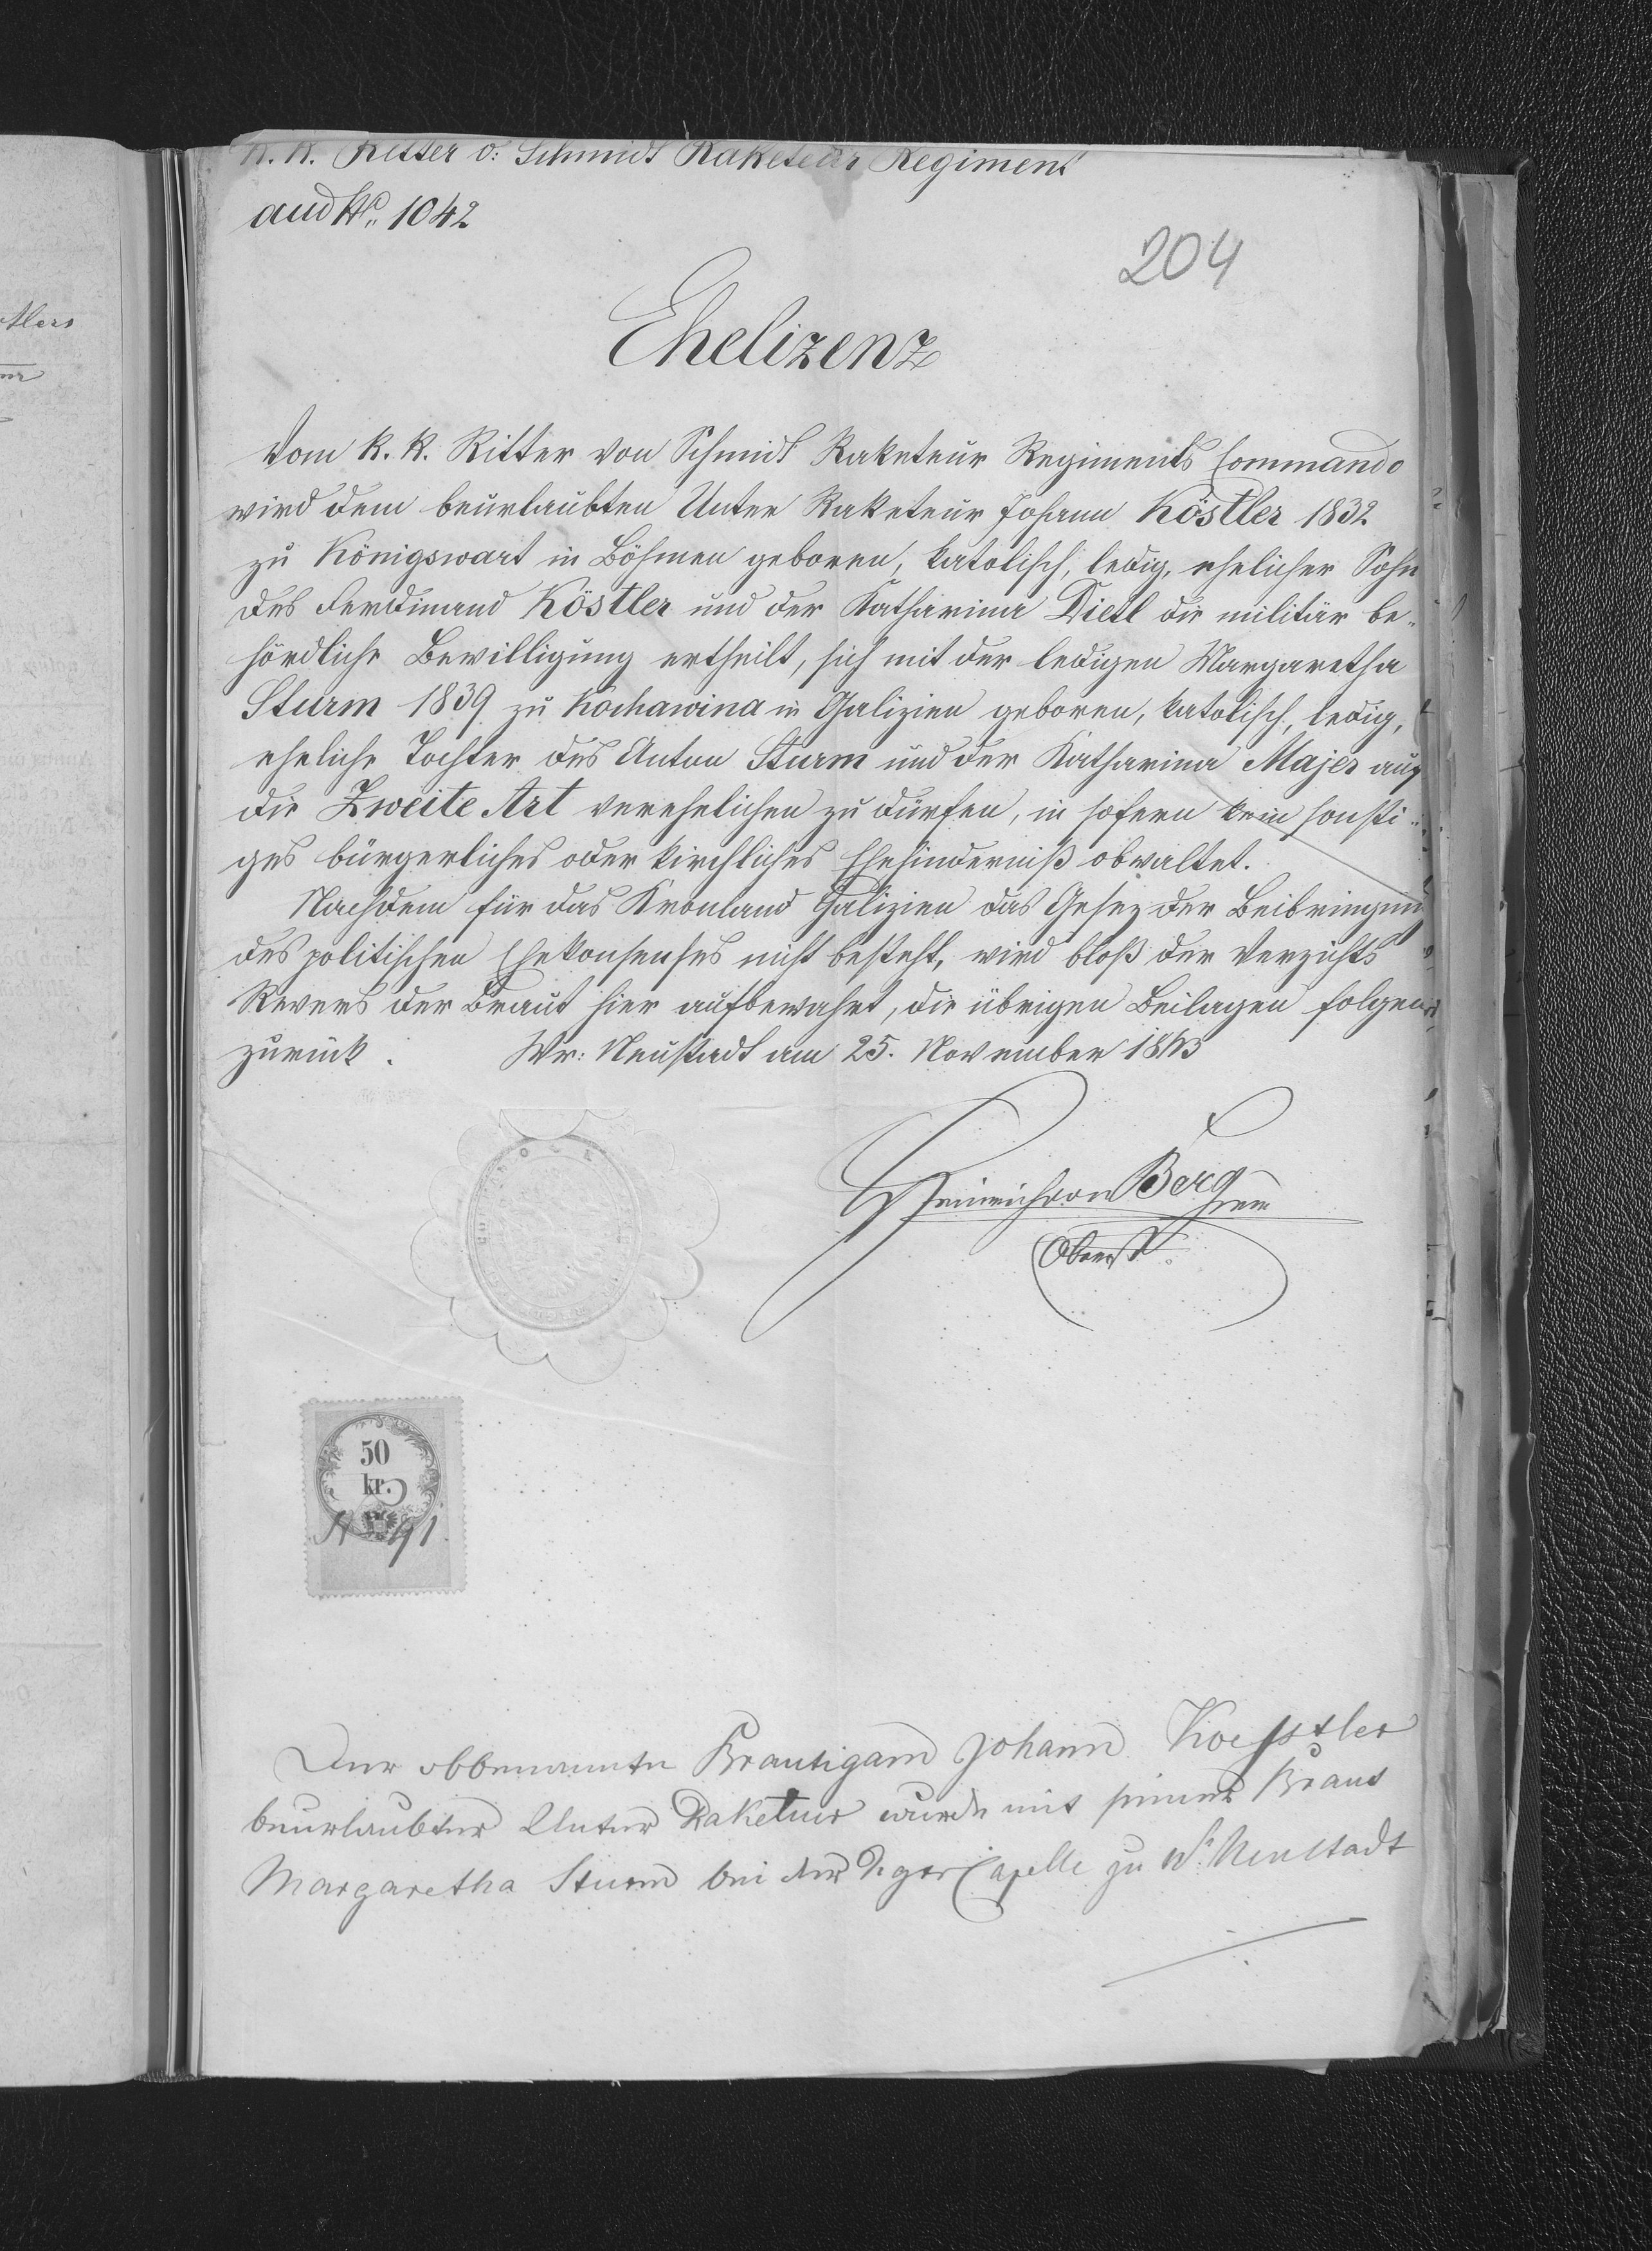 K. K. Ritter v: Schmidt Raketeur Regiment
aud No. 1042
204
Ehelizenz
Vom K. K. Ritter von Schmidt Raketeur Regiments Commando
wird dem beurlaubten Unter Raketeur Johann Köstler 1832
zu Königswart in Böhmen geboren, katolisch, ledig, ehelicher Sohn
des Ferdinand Köstler und der Katharina Dietl die militär be-
hördliche Bewilligung ertheilt, sich mit der ledigen Margaretha
Sturm 1839 zu Kochawina in Galizien geboren, katolisch, ledig,
eheliche Tochter des Anton Sturm und der Katharina Majer auf
die Zweite Art verehelichen zu dürfen, in sofern kein sonsti-
ges bürgerliches oder kirchliches Ehehinderniß obwaltet.
Nachdem für das Kronland Galizien das Gesez der Beibringung
des politischen Ehekonsenses nicht besteht, wird bloß der Verzichts
Revers der Braut hier aufbewahrt, die übrigen Beilagen folgen
zurück. Wr: Neustadt am 25. November 1863
Heinrich von Berg
Oberst
50
kr.
Der obbenannte Brautigam Johann Koestler
beurlaubter Unter Raketeur wurde mit seiner Braut
Margaretha Sturm bei der Capelle zu W: Neustadt